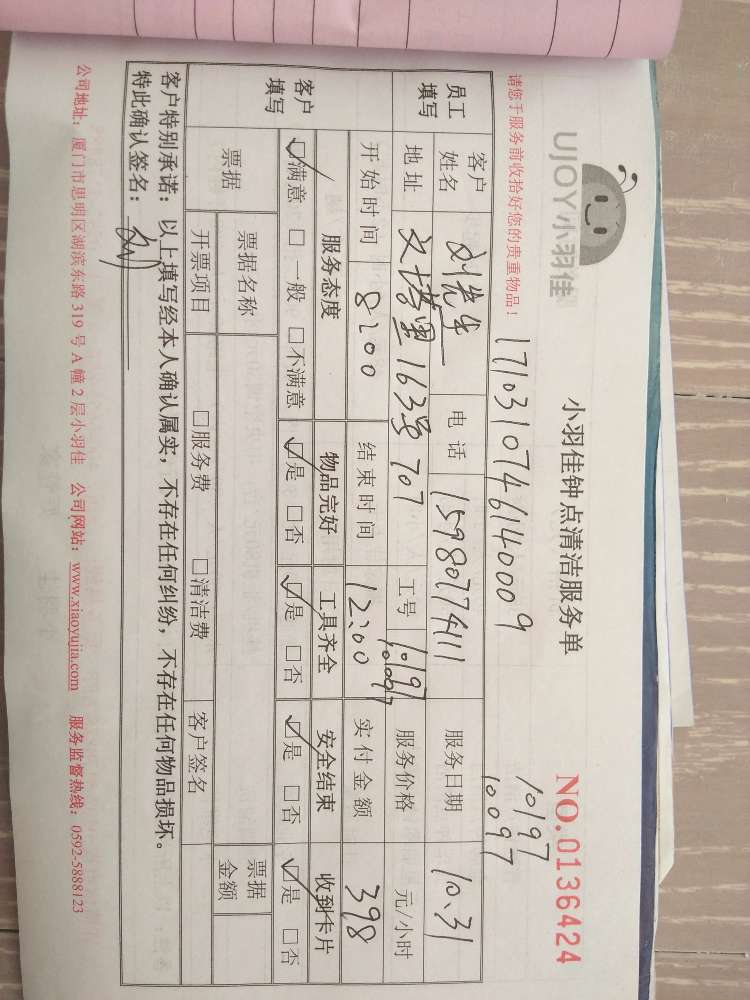 UJOY小羽佳
小羽佳钟点清洁服务单
NO.0136424
请您于服务前收拾好您的贵重物品!
1710310746140009
10197
10097
员工填写
客户姓名
电话 15980774111
服务日期 10.31
地址 文塔里163号707
工号 10197
10097
服务价格 元/小时
开始时间 8:00 结束时间 12:00 实付金额 398
客户填写
服务态度 物品完好 工具齐全 安全结束 收到卡片
☑满意 □一般 □不满意 ☑是 □否 ☑是 □否 ☑是 □否 ☑是 □否
票据
票据名称
票据金额
开票项目 □服务费 □清洁费 客户签名
客户特别承诺:以上填写经本人确认属实,不存在任何纠纷,不存在任何物品损坏。
特此确认签名:
公司地址:厦门市思明区湖滨东路 319 号 A 幢 2 层小羽佳 公司网站:www.xiaoyujia.com 服务监督热线:0592-5888123